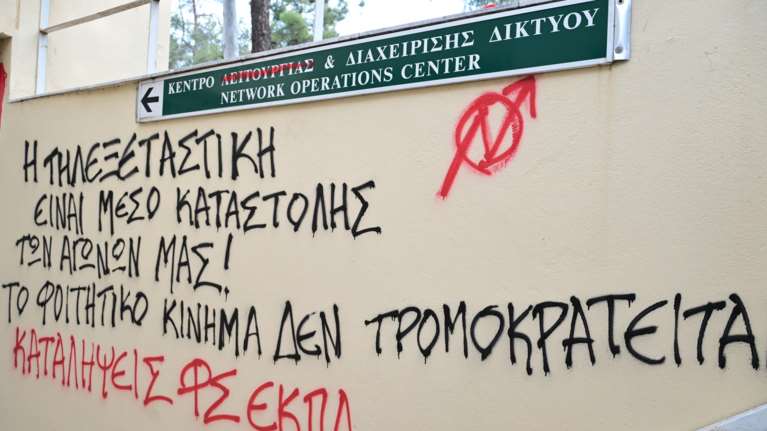 ΚΕΝΤΡΟ ΛΕΙΤΟΥΡΓΙΑΣ & ΔΙΑΧΕΙΡΙΣΗΣ ΔΙΚΤΥΟΥ
NETWORK OPERATIONS CENTER
Η ΤΗΛΕΞΕΤΑΣΤΙΚΗ
ΕΙΝΑΙ ΜΕΣΟ ΚΑΤΑΣΤΟΛΗΣ
ΤΩΝ ΑΓΩΝΩΝ ΜΑΣ!
ΤΟ ΦΟΙΤΗΤΙΚΟ ΚΙΝΗΜΑ ΔΕΝ ΤΡΟΜΟΚΡΑΤΕΙΤΑΙ
ΚΑΤΑΛΗΨΕΙΣ ΦΣ ΕΚΠΑ